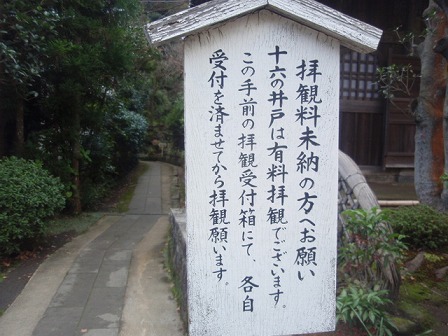 拝観料未納の方へお願い
十六の井戸は有料拝観でございます。
この手前の拝観受付箱にて、各自
受付を済ませてから拝観願います。